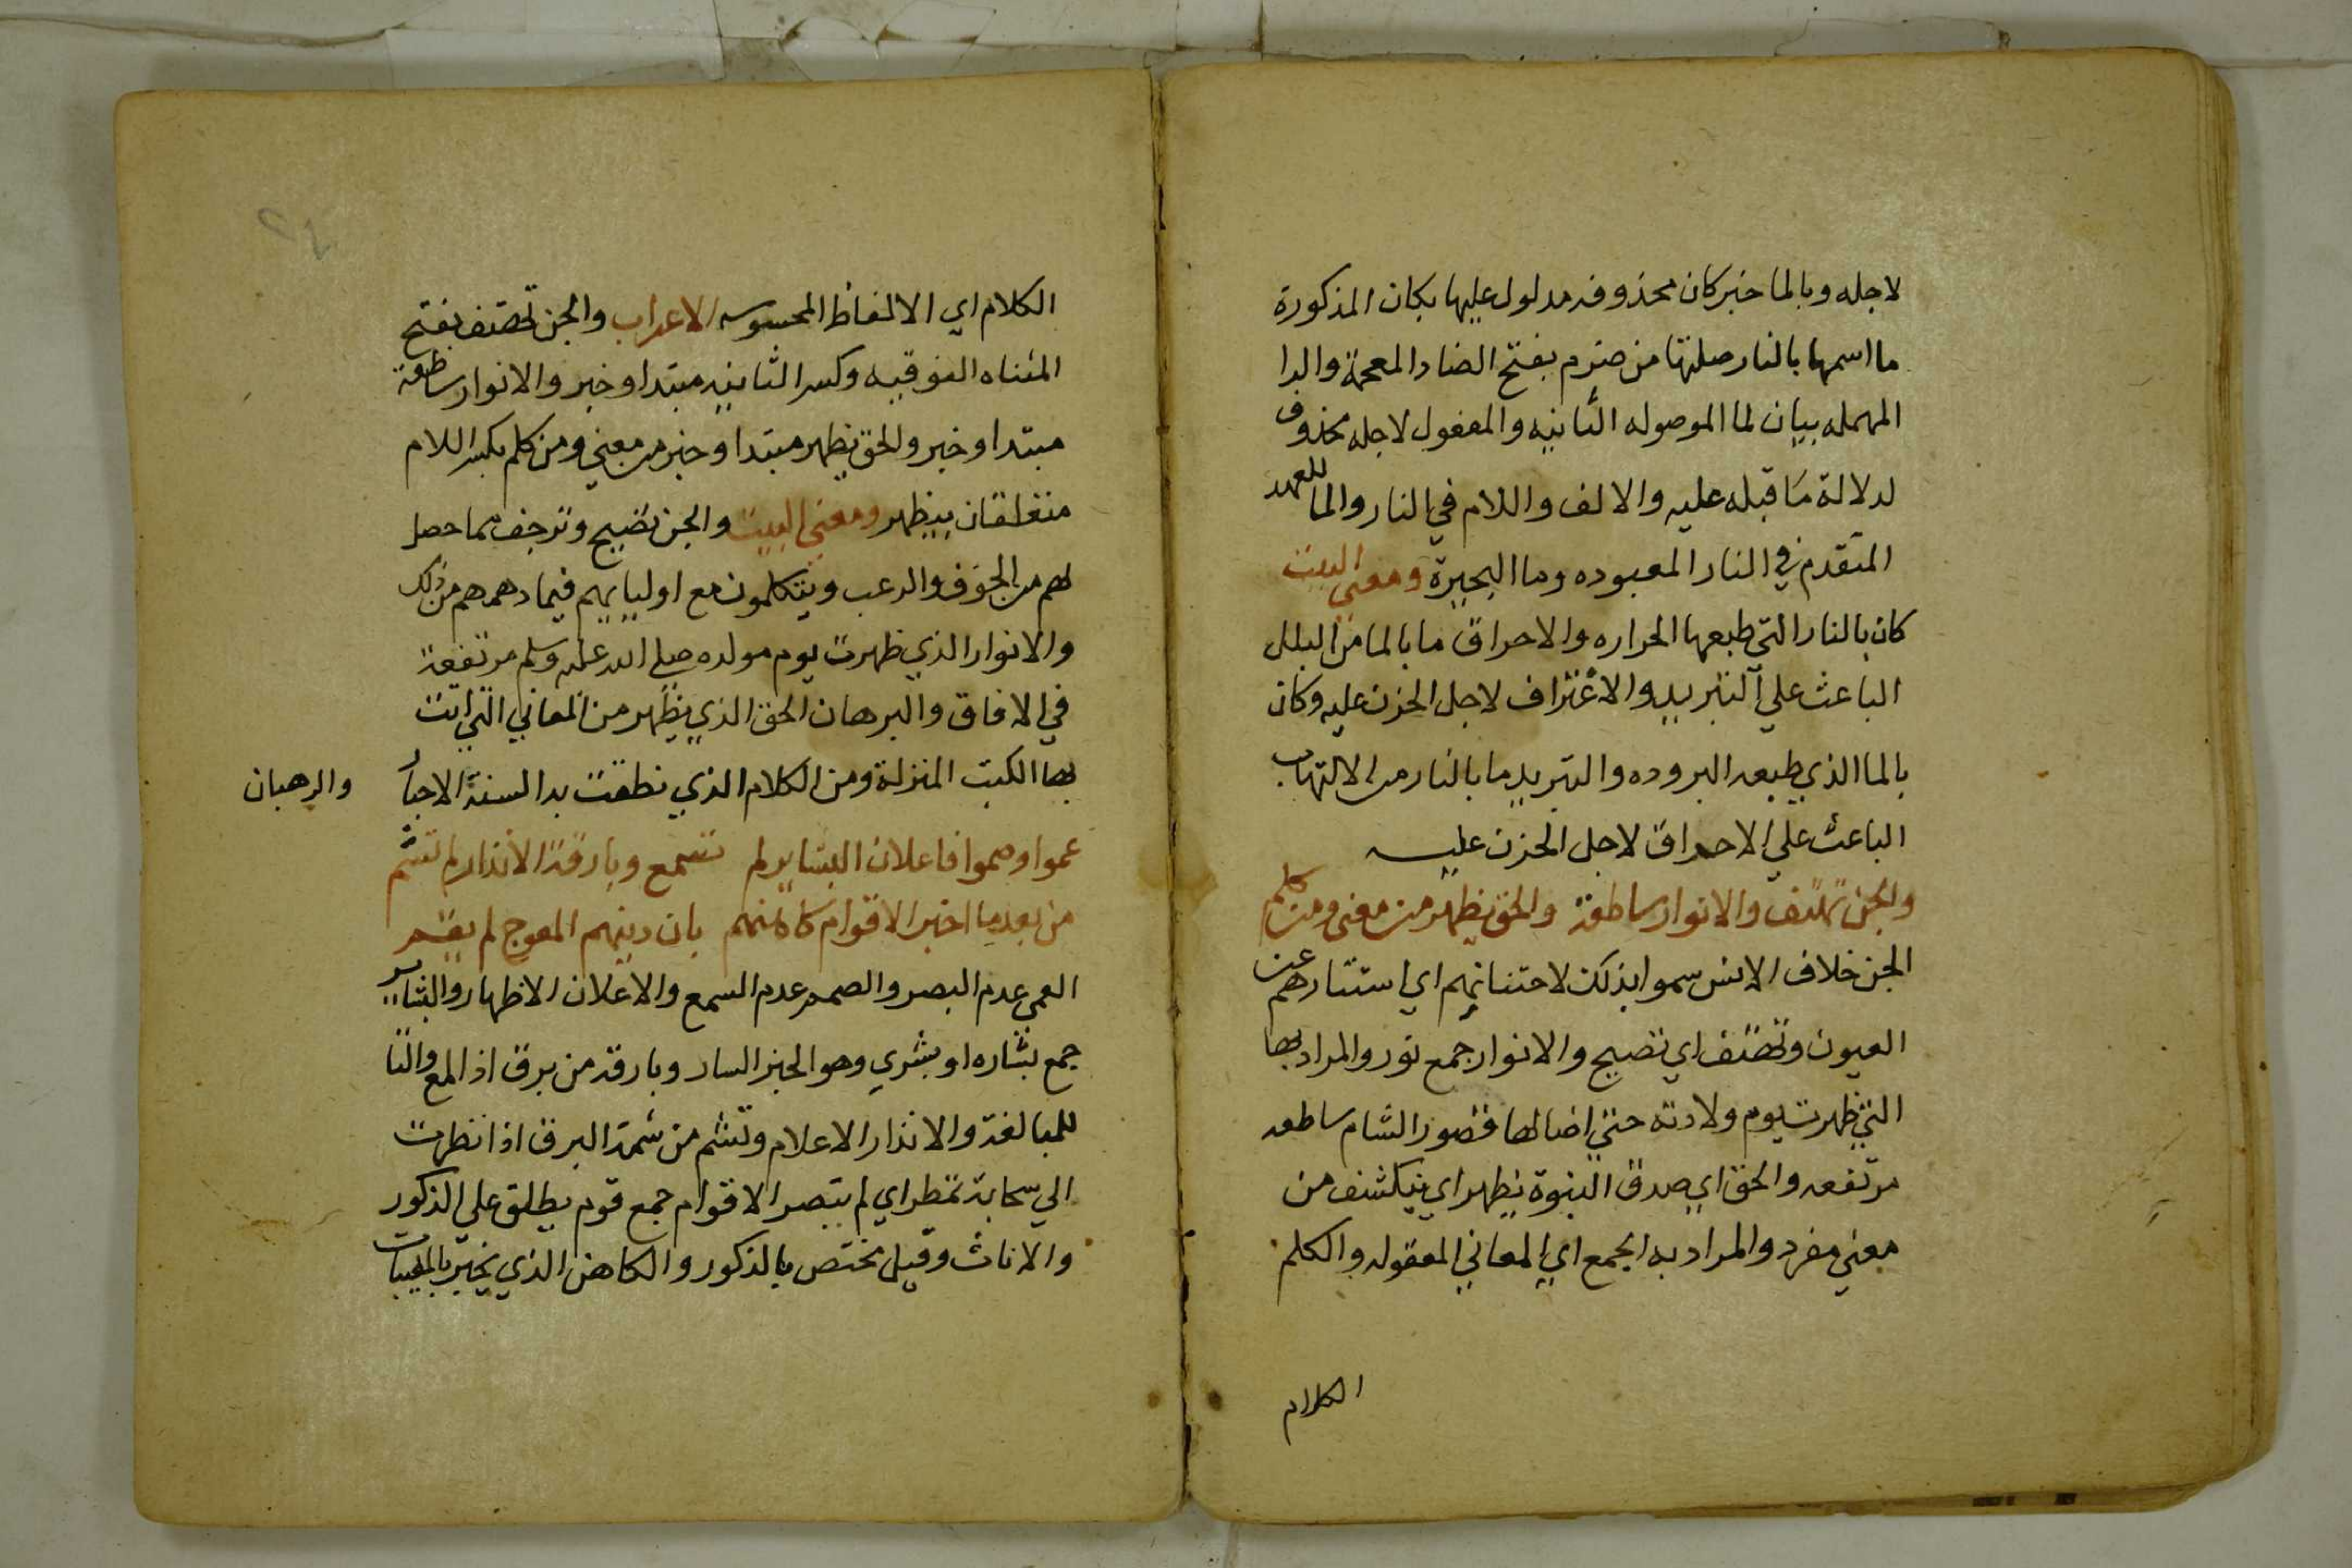 لاجله وبالما خبر كان محذوفه مدلول عليها بكان المذكورة
ما اسمها بالنار صلتها من ضرم بفتح الضاد المعجمة والرا
المهمله بيان لما الموصوله الثانيه والمفعول لاجله محذوف
لدلالة ما قبله عليه والالف واللام في النار والما للعهد
المتقدم في النار المعبوده وما البحيرة ومعني البيت
كان بالنار التي طبعها الحراره والاحراق ما بالما من البلل
الباعث علي التبريد والاغتراف لاجل الحزن عليه وكان
بالما الذي طبعه البروده والتبريد ما بالنار من الالتهاب
الباعث علي الاحراق لاجل الحزن عليه
والجن تهتف والانوار ساطعة والحق يظهر من معني ومن كلم
الجن خلاف الانس سموا بذلك لاجتنانهم اي استتارهم عن
العيون وتهتف اي تصيح والانوار جمع نور والمراد بها
التي ظهرت يوم ولادته حتي اضا لها قصور الشام ساطعه
مرتفعه والحق اي صدق النبوة يظهر اي ينكشف من
معني مفرد والمراد به الجمع اي المعاني المعقوله والكلم
الكلام
٢٤
الكلام اي الالفاظ المحسوسه الاعراب والجن تهتف بفتح
المثناه الفوقيه وكسر الثانيه مبتدا وخبر والانوار ساطعة
مبتدا وخبر والحق يظهر مبتدا وخبر من معني ومن كلم بكسر اللام
متعلقان بيظهر ومعني البيت والجن تصيح وترجف مما حصل
لهم من الخوف والرعب ويتكلمون مع اوليايهم فيما دهمهم من ذلك
والانوار الذي ظهرت يوم مولده صلي الله عليه وسلم مرتفعة
في الافاق والبرهان الحق الذي يظهر من المعاني التي اتت
بها الكتب المنزلة ومن الكلام الذي نطقت به السنة الاحبار
والرهبان
عموا وصموا فاعلان البشاير لم تسمع وبارقة الانذار لم تشم
من بعد ما اخبر الاقوام كاهنهم بان دينهم المعوج لم يقم
العمي عدم البصر والصمم عدم السمع والاعلان الاظهار والبشاير
جمع بشاره او بشري وهو الخبر السار وبارقه من برق اذا لمع والتا
للمبالغة والانذار الاعلام وتشم من شمت البرق اذا نظرت
الي سحابة تمطر اي لم يبتصر الاقوام جمع قوم يطلق علي الذكور
والاناث وقيل مختص بالذكور والكاهن الذي يخبر بالمغيبات